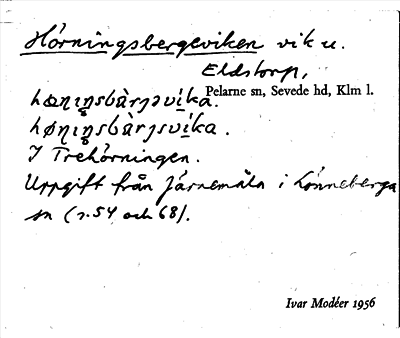 Hörningsbergeviken vik u.
Eldstorp,
Pelarne sn, Sevede hd, Klm l.
I Trehörningen.
Uppgift från Järnemåla i Lönneberga
sn (s. 54 och 68).
Ivar Modéer 1956